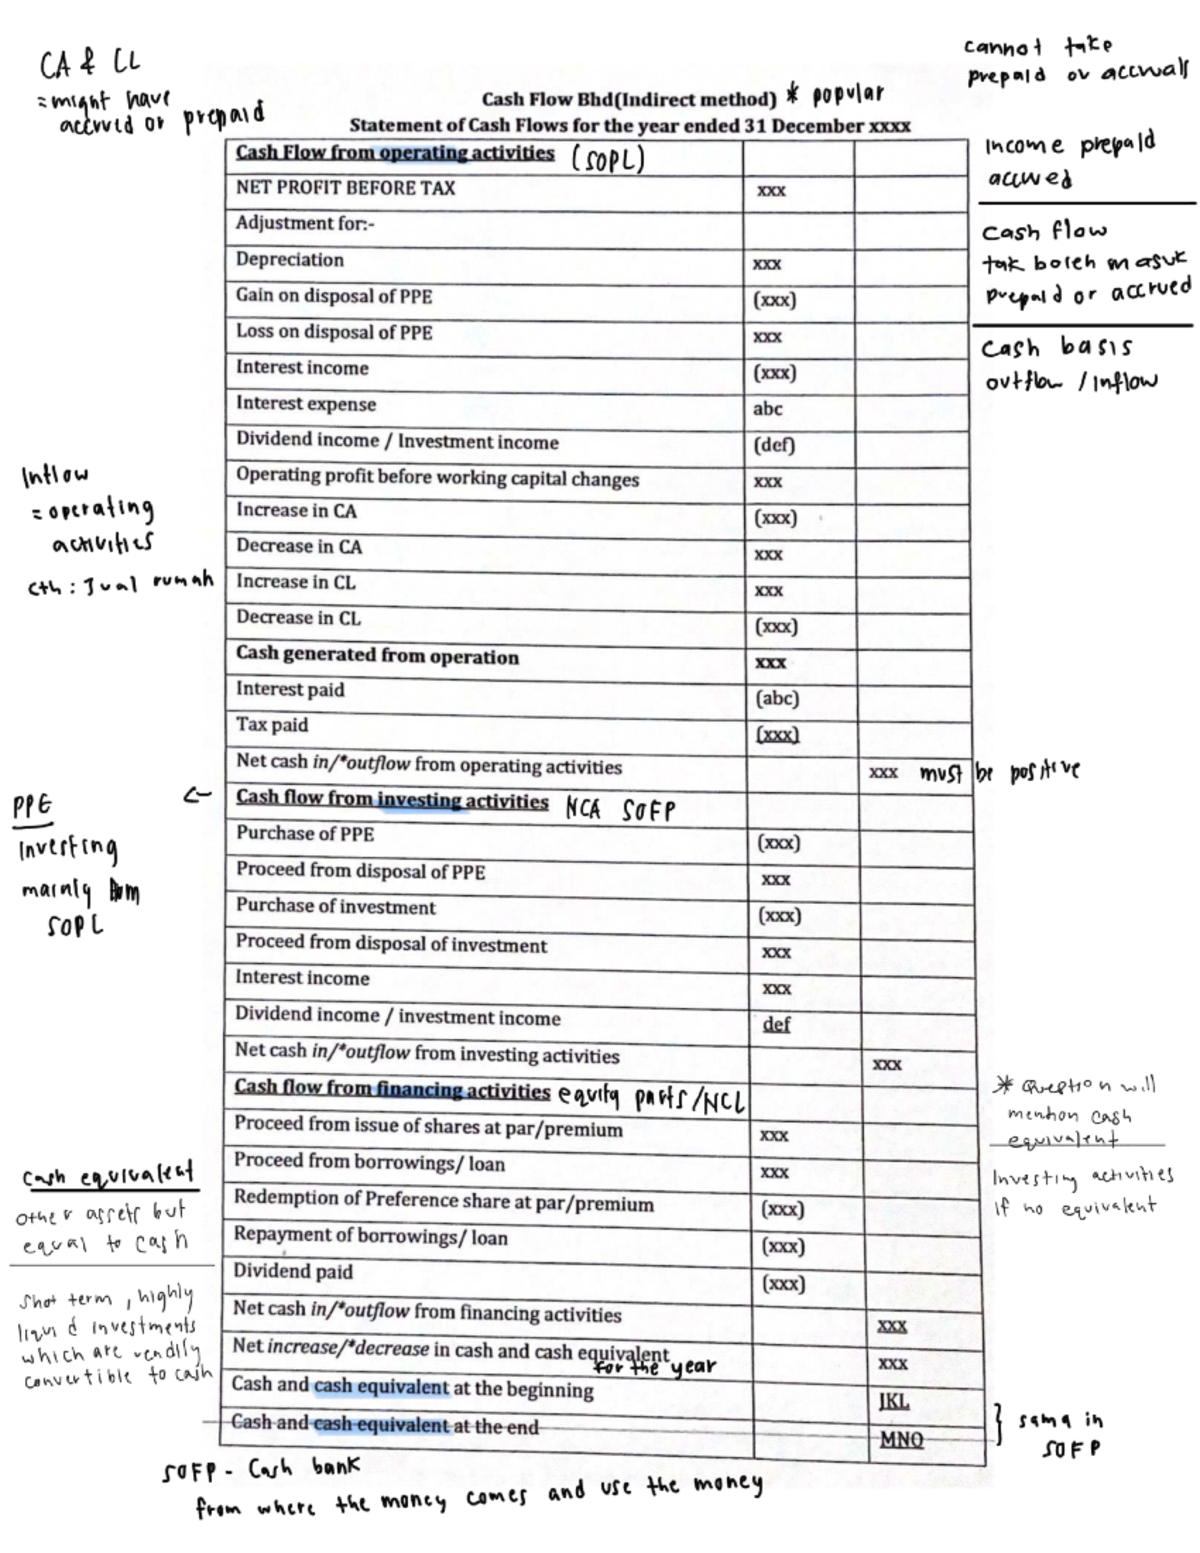 CA & CL
= might have
accrued or prepaid
cannot take
prepaid or accruals
Cash Flow Bhd(Indirect method) * popular
Statement of Cash Flows for the year ended 31 December xxxx
Income prepaid
accrued
Cash flow
tak boleh masuk
prepaid or accrued
Cash basis
outflow / inflow
Cash Flow from operating activities (SOPL)
NET PROFIT BEFORE TAX xxx
Adjustment for:-
Depreciation xxx
Gain on disposal of PPE (xxx)
Loss on disposal of PPE xxx
Interest income (xxx)
Interest expense abc
Dividend income / Investment income (def)
Operating profit before working capital changes xxx
Increase in CA (xxx)
Decrease in CA xxx
Increase in CL xxx
Decrease in CL (xxx)
Cash generated from operation xxx
Interest paid (abc)
Tax paid (xxx)
Net cash in/*outflow from operating activities xxx must be positive
Inflow
= operating
activities
cth : Jual rumah
Cash flow from investing activities NCA SOFP
Purchase of PPE (xxx)
Proceed from disposal of PPE xxx
Purchase of investment (xxx)
Proceed from disposal of investment xxx
Interest income xxx
Dividend income / investment income def
Net cash in/*outflow from investing activities xxx
←
PPE
Investing
mainly
SOPL
Cash flow from financing activities equity parts/NCL
Proceed from issue of shares at par/premium xxx
Proceed from borrowings/ loan xxx
Redemption of Preference share at par/premium (xxx)
Repayment of borrowings/ loan (xxx)
Dividend paid (xxx)
Net cash in/*outflow from financing activities xxx
Net increase/*decrease in cash and cash equivalent xxx
for the year
Cash and cash equivalent at the beginning JKL
Cash and cash equivalent at the end MNO
* Question will
mention cash
equivalent
Investing activities
if no equivalent
} sama in
SOFP
Cash equivalent
other assets but
equal to cash
Shot term , highly
liquid investments
which are readily
convertible to cash
SOFP - Cash bank
from where the money comes and use the money